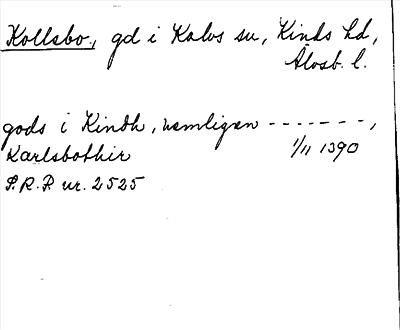 Kollsbo, gd i Kalvs sn, Kinds hd,
Älvsb. l.
gods i Kindh, næmligæn - - - - - - -,
Karlsbothir 1/11 1390
S.R.P. nr. 2525